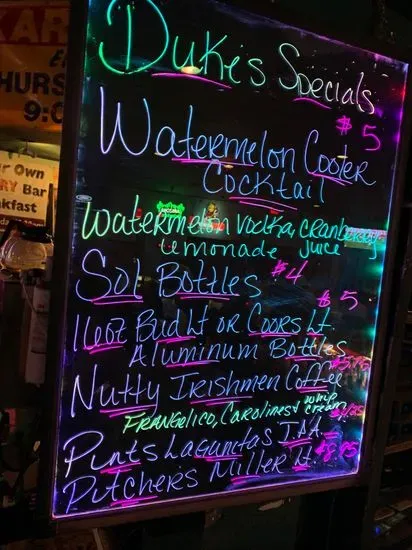 Duke's Specials
$5
Watermelon Cooler
Cocktail
Watermelon Vodka, Cranberry
Lemonade Juice
Sol Bottles $4
$5
16oz Bud Lt or Coors Lt.
Aluminum Bottles
Nutty Irishmen Coffee
Frangelico, Carolines & whip
cream
Pints Lagunitas IPA
$8.75
Pitchers Miller Lt
HURS
9:0
ur Own
RY Bar
kfast